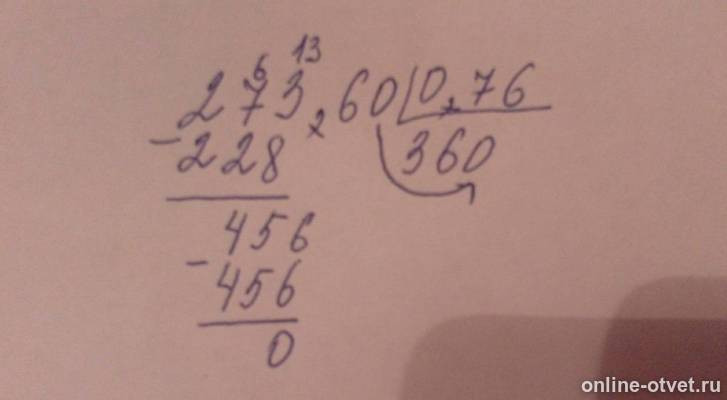 6 13
273,60 0,76
- 228 360
456
- 456
0
online-otvet.ru